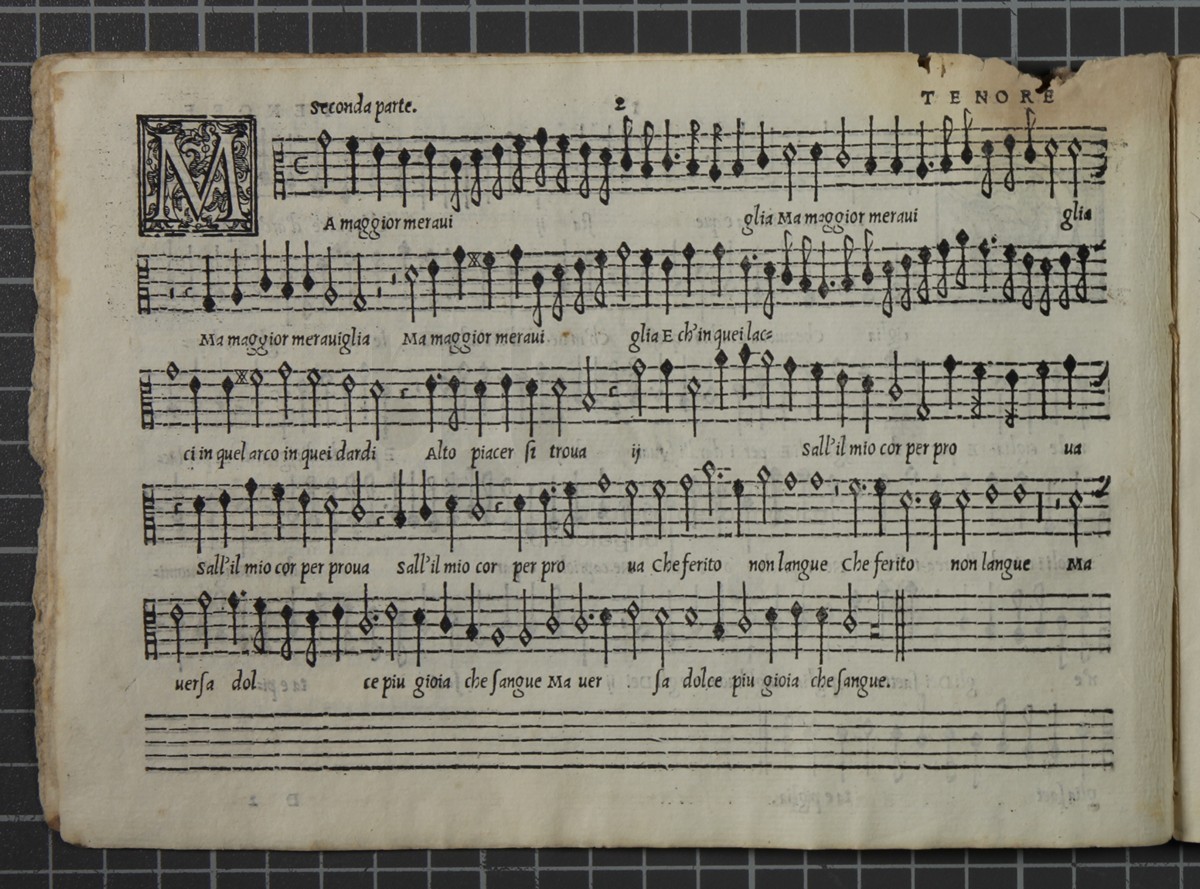 Seconda parte. 2 TENORE
MA maggior meraui glia Ma maggior meraui glia
Ma maggior merauiglia Ma maggior meraui glia E ch'in quei lac=
ci in quel arco in quei dardi Alto piacer ſi troua ij Sall'il mio cor per pro ua
Sall'il mio cor per proua Sall'il mio cor per pro ua Che ferito non langue Che ferito non langue Ma
uerſa dol ce piu gioia che ſangue Ma uer ſa dolce piu gioia che ſangue.